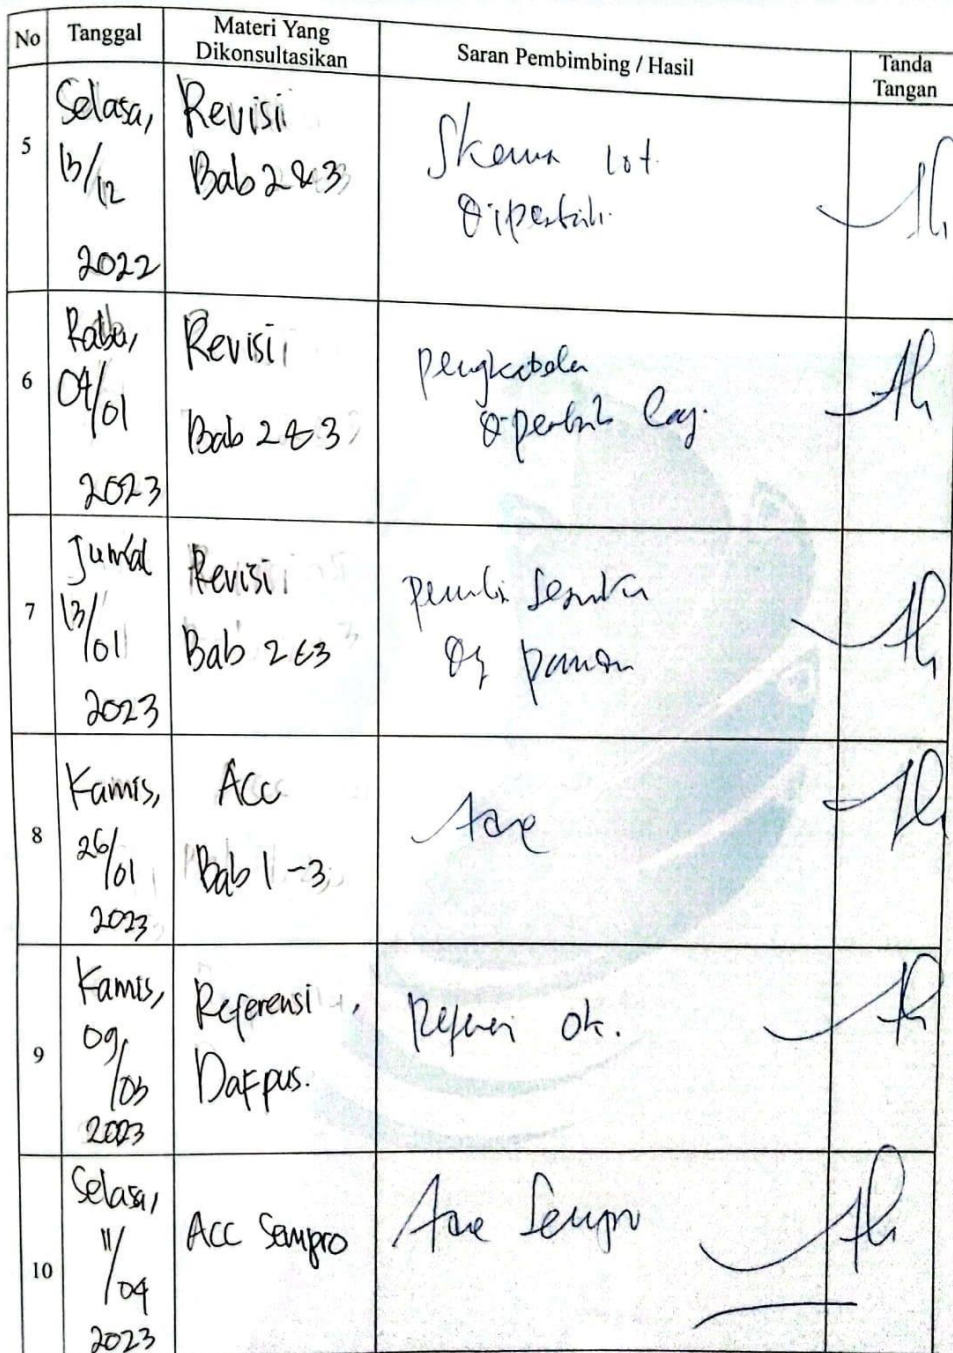 No Tanggal Materi Yang Dikonsultasikan Saran Pembimbing / Hasil Tanda Tangan
5
Selasa,
13/12
2022
Revisi
Bab 2 & 3
Skema Iot
6
Rabu,
04/01
2023
Revisi
Bab 2 & 3
7
Jumat
13/01
2023
Revisi
Bab 2 & 3
8
Kamis,
26/01
2023
Acc
Bab 1-3
Acc
9
Kamis,
09/03
2023
Referensi
Dafpus.
Referensi ok.
10
Selasa,
11/04
2023
ACC Sempro
Acc Sempro